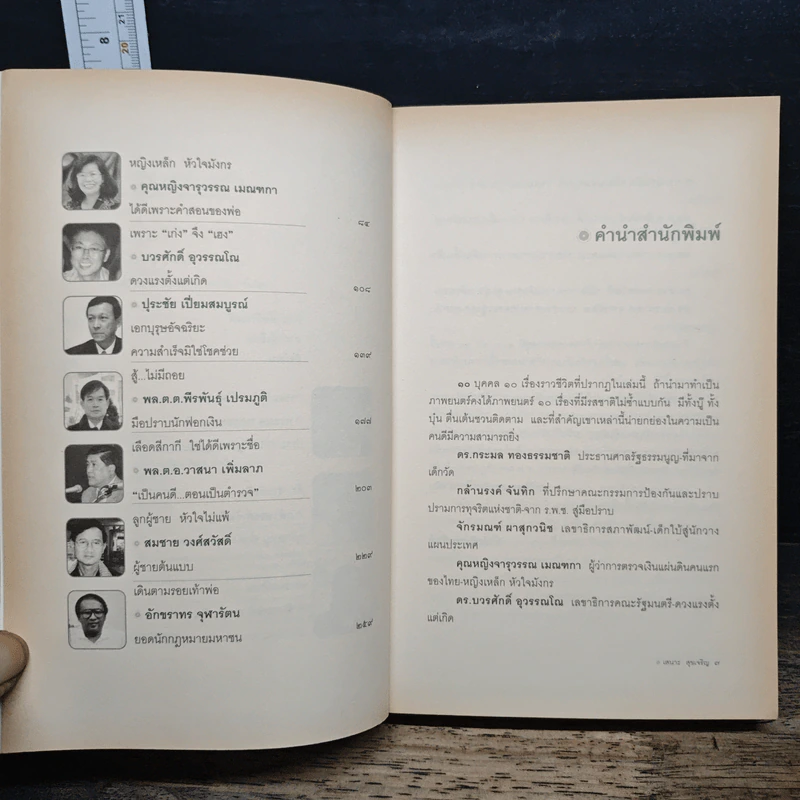 8
21
20
หญิงเหล็ก หัวใจมังกร
คุณหญิงจารุวรรณ เมณฑกา
ได้ดีเพราะคำสอนของพ่อ
๘๔
เพราะ “เก่ง” จึง “เฮง”
บวรศักดิ์ อุวรรณโณ
ดวงแรงตั้งแต่เกิด
๑๐๘
ปุระชัย เปี่ยมสมบูรณ์
เอกบุรุษอัจฉริยะ
ความสำเร็จมิใช่โชคช่วย
๑๓๙
สู้...ไม่มีถอย
พล.ต.ต.พีรพันธุ์ เปรมภูติ
มือปราบนักฟอกเงิน
๑๗๗
เลือดสีกากี ใช่ได้ดีเพราะชื่อ
พล.ต.อ.วาสนา เพิ่มลาภ
“เป็นคนดี...ตอนเป็นตำรวจ”
๒๐๓
ลูกผู้ชาย หัวใจไม่แพ้
สมชาย วงศ์สวัสดิ์
ผู้ชายต้นแบบ
๒๒๙
เดินตามรอยเท้าพ่อ
อักขราทร จุฬารัตน
ยอดนักกฎหมายมหาชน
๒๕๙
คำนำสำนักพิมพ์
๑๐ บุคคล ๑๐ เรื่องราวชีวิตที่ปรากฏในเล่มนี้ ถ้านำมาทำเป็น
ภาพยนตร์คงได้ภาพยนตร์ ๑๐ เรื่องที่มีรสชาติไม่ซ้ำแบบกัน มีทั้งบู๊ ทั้ง
บุ๋น ตื่นเต้นชวนติดตาม และที่สำคัญเขาเหล่านี้น่ายกย่องในความเป็น
คนดีมีความสามารถยิ่ง
ดร.กระมล ทองธรรมชาติ ประธานศาลรัฐธรรมนูญ-ที่มาจาก
เด็กวัด
กล้านรงค์ จันทิก ที่ปรึกษาคณะกรรมการป้องกันและปราบ
ปรามการทุจริตแห่งชาติ-จาก ร.พ.ช. สู่มือปราบ
จักรมณฑ์ ผาสุกวนิช เลขาธิการสภาพัฒน์-เด็กใบ้สู่นักวาง
แผนประเทศ
คุณหญิงจารุวรรณ เมณฑกา ผู้ว่าการตรวจเงินแผ่นดินคนแรก
ของไทย-หญิงเหล็ก หัวใจมังกร
ดร.บวรศักดิ์ อุวรรณโณ เลขาธิการคณะรัฐมนตรี-ดวงแรงตั้ง
แต่เกิด
เสนาะ สุขเจริญ ๗